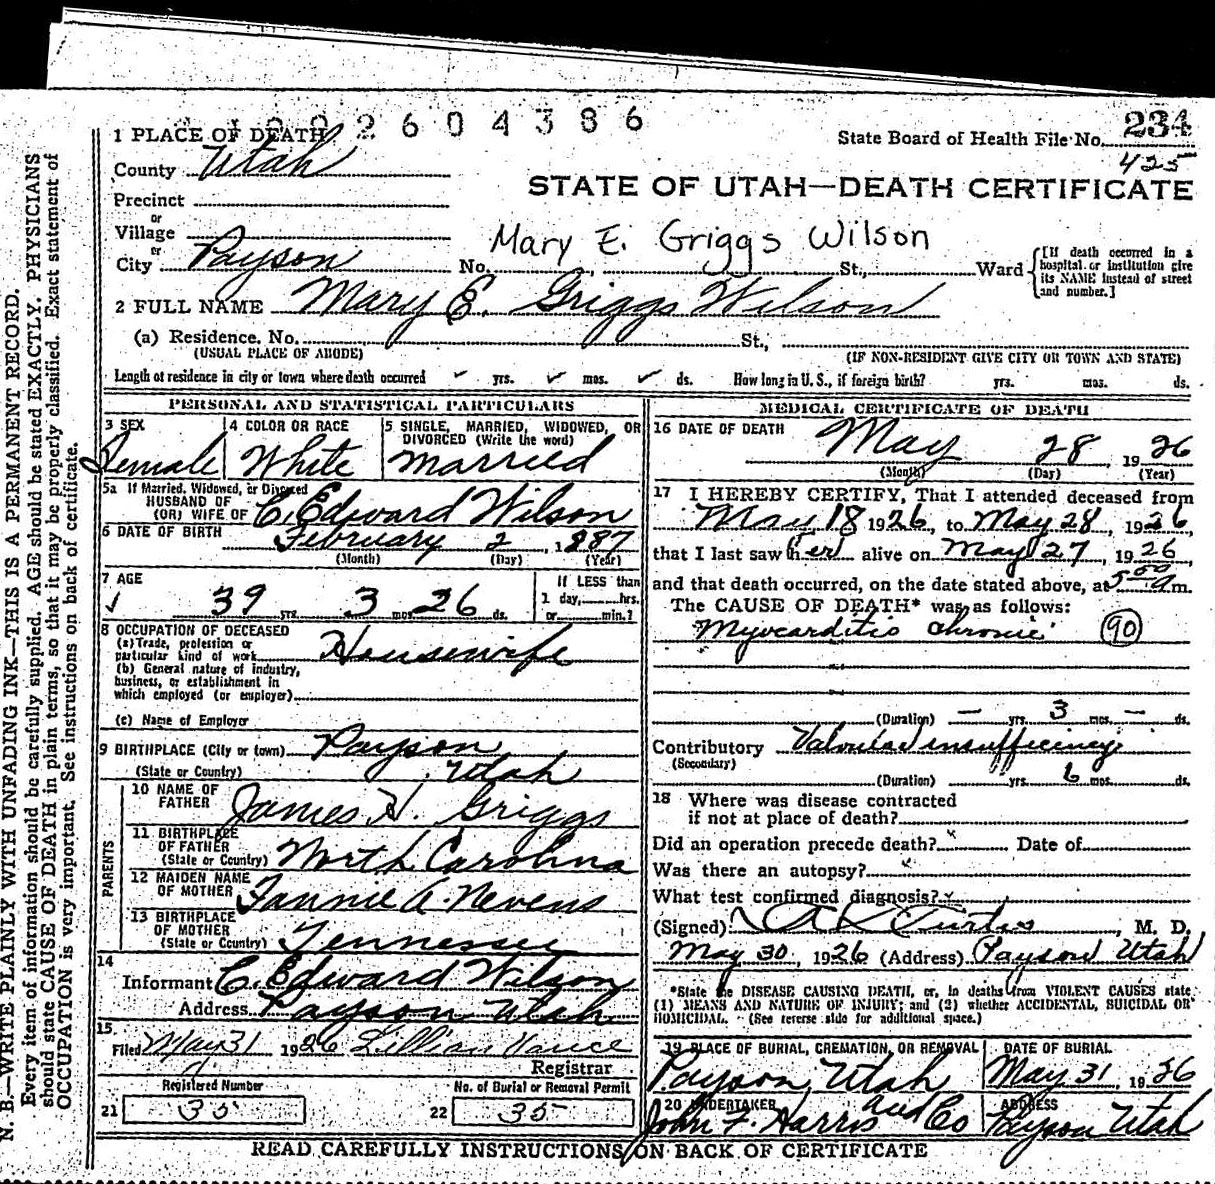 2604386
1 PLACE OF DEATH
State Board of Health File No. 234
425
County Utah
STATE OF UTAH—DEATH CERTIFICATE
Precinct
or
Village
Mary E. Griggs Wilson
or
City Payson No. , St., Ward
[If death occurred in a hospital or institution give its NAME instead of street and number.]
2 FULL NAME Mary E. Griggs Wilson
(a) Residence. No. St.,
(USUAL PLACE OF ABODE) (IF NON-RESIDENT GIVE CITY OR TOWN AND STATE)
Length of residence in city or town where death occurred yrs. mos. ds. How long in U. S., if foreign birth? yrs. mos. ds.
PERSONAL AND STATISTICAL PARTICULARS
3 SEX 4 COLOR OR RACE 5 SINGLE, MARRIED, WIDOWED, OR DIVORCED (Write the word)
Female White Married
5a If Married, Widowed, or Divorced
HUSBAND OF
(OR) WIFE OF C. Edward Wilson
6 DATE OF BIRTH February 2, 1887
(Month) (Day) (Year)
7 AGE If LESS than
39 yrs. 3 mos. 26 ds. 1 day, hrs.
or min.?
8 OCCUPATION OF DECEASED
(a) Trade, profession or
particular kind of work Housewife
(b) General nature of industry,
business, or establishment in
which employed (or employer)
(c) Name of Employer
9 BIRTHPLACE (City or town) Payson
(State or Country) Utah
PARENTS
10 NAME OF
FATHER James H. Griggs
11 BIRTHPLACE
OF FATHER
(State or Country) North Carolina
12 MAIDEN NAME
OF MOTHER Fannie A. Nevens
13 BIRTHPLACE
OF MOTHER
(State or Country) Tennessee
14
Informant C. Edward Wilson
Address Payson Utah
15
Filed May 31 1926 Lillian Vance
Registrar
Registered Number No. of Burial or Removal Permit
21 35 22 35
MEDICAL CERTIFICATE OF DEATH
16 DATE OF DEATH May 28, 1926
(Month) (Day) (Year)
17 I HEREBY CERTIFY, That I attended deceased from
May 18 1926, to May 28, 1926
that I last saw her alive on May 27, 1926
and that death occurred, on the date stated above, at 5 00 a m.
The CAUSE OF DEATH* was as follows:
Myocarditis chronic 90
(Duration) — yrs. 3 mos. — ds.
Contributory Valvular insufficiency
(Secondary)
(Duration) yrs. 6 mos. ds.
18 Where was disease contracted
if not at place of death?
Did an operation precede death? x Date of
Was there an autopsy? x
What test confirmed diagnosis? x
(Signed) A L Curtis, M. D.
May 30, 1926 (Address) Payson Utah
*State the DISEASE CAUSING DEATH, or, in deaths from VIOLENT CAUSES state
(1) MEANS AND NATURE OF INJURY; and (2) whether ACCIDENTAL, SUICIDAL OR
HOMICIDAL. (See reverse side for additional space.)
19 PLACE OF BURIAL, CREMATION, OR REMOVAL DATE OF BURIAL
Payson, Utah May 31, 1926
20 UNDERTAKER ADDRESS
John F. Harris and Co Payson Utah
READ CAREFULLY INSTRUCTIONS ON BACK OF CERTIFICATE
N. B.—WRITE PLAINLY WITH UNFADING INK—THIS IS A PERMANENT RECORD.
Every item of information should be carefully supplied. AGE should be stated EXACTLY. PHYSICIANS
should state CAUSE OF DEATH in plain terms, so that it may be properly classified. Exact statement of
OCCUPATION is very important. See instructions on back of certificate.